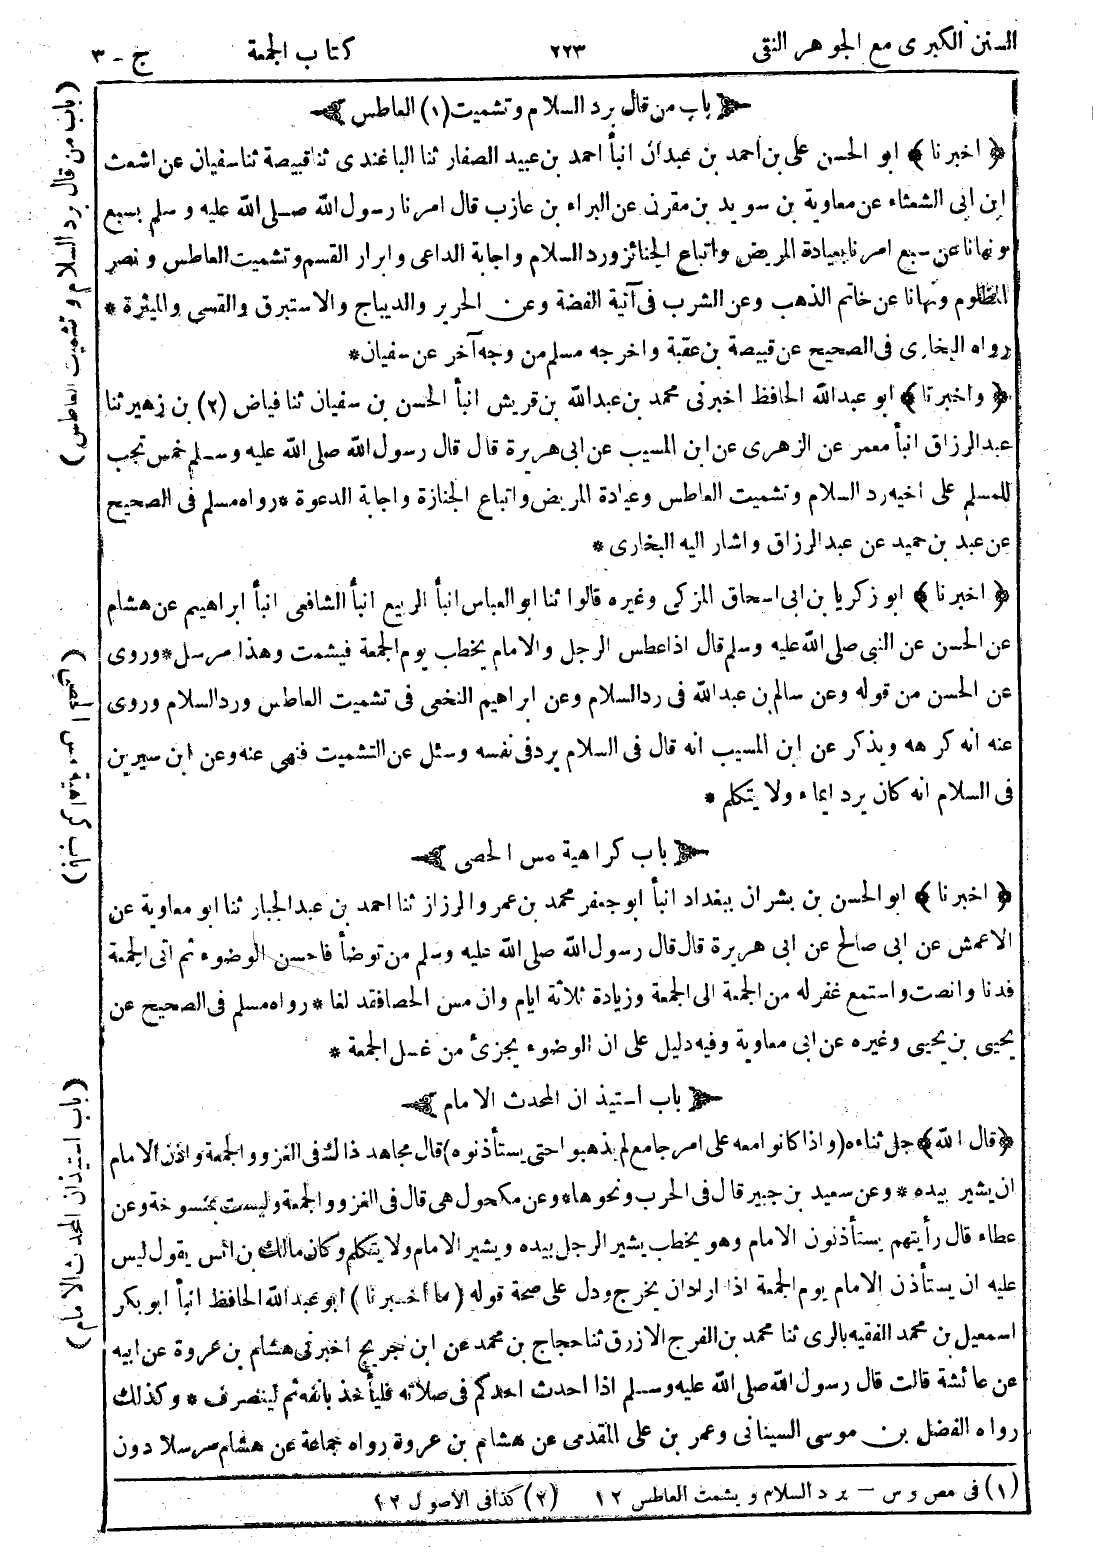 السنن الكبرى مع الجوهر النقى ٢٢٣ كتاب الجمعة ج - ٣
باب من قال برد السلام وتشميت (١) العاطس
﴿ اخبرنا ﴾ ابو الحسن على بن أحمد بن عبدان انبأ احمد بن عبيد الصفار ثنا الباغندى ثنا قبيصة ثنا سفيان عن اشعث
ابن ابى الشعثاء عن معاوية بن سويد بن مقرن عن البراء بن عازب قال امرنا رسول الله صلى الله عليه وسلم بسبع
ونهانا عن سبع امرنا بعيادة المريض واتباع الجنائز ورد السلام واجابة الداعى وابرار القسم وتشميت العاطس ونصر
المظلوم ونهانا عن خاتم الذهب وعن الشرب فى آنية الفضة وعن الحرير والديباج والاستبرق والقسى والميثرة *
رواه البخارى فى الصحيح عن قبيصة بن عقبة واخرجه مسلم من وجه آخر عن سفيان *
﴿ واخبرنا ﴾ ابو عبدالله الحافظ اخبرنى محمد بن عبدالله بن قريش انبأ الحسن بن سفيان ثنا فياض (٢) بن زهير ثنا
عبدالرزاق انبأ معمر عن الزهرى عن ابن المسيب عن ابى هريرة قال قال رسول الله صلى الله عليه وسلم خمس تجب
للمسلم على اخيه رد السلام وتشميت العاطس وعيادة المريض واتباع الجنازة واجابة الدعوة * رواه مسلم فى الصحيح
عن عبد بن حميد عن عبدالرزاق واشار اليه البخارى *
﴿ اخبرنا ﴾ ابو زكريا بن ابى اسحاق المزكى وغيره قالوا ثنا ابو العباس انبأ الربيع انبأ الشافعى انبأ ابراهيم عن هشام
عن الحسن عن النبى صلى الله عليه وسلم قال اذا عطس الرجل والامام يخطب يوم الجمعة فيشمت وهذا مرسل * وروى
عن الحسن من قوله وعن سالم بن عبدالله فى رد السلام وعن ابراهيم النخعى فى تشميت العاطس ورد السلام وروى
عنه انه كرهه ويذكر عن ابن المسيب انه قال فى السلام يرد فى نفسه وسئل عن التشميت فنهى عنه وعن ابن سيرين
فى السلام انه كان يرد ايماء ولا يتكلم *
باب كراهية مس الحصى
﴿ اخبرنا ﴾ ابو الحسن بن بشران ببغداد انبأ ابو جعفر محمد بن عمرو الرزاز ثنا احمد بن عبد الجبار ثنا ابو معاوية عن
الاعمش عن ابى صالح عن ابى هريرة قال قال رسول الله صلى الله عليه وسلم من توضأ فاحسن الوضوء ثم اتى الجمعة
فدنا وانصت واستمع غفر له من الجمعة الى الجمعة وزيادة ثلاثة ايام وان مس الحصا فقد لغا * رواه مسلم فى الصحيح عن
يحيى بن يحيى وغيره عن ابى معاوية وفيه دليل على ان الوضوء يجزئ من غسل الجمعة *
باب استيذان المحدث الامام
﴿ قال الله ﴾ جل ثناءه (واذا كانوا معه على امر جامع لم يذهبوا حتى يستأذنوه) قال مجاهد ذاك فى الغزو والجمعة واذن الامام
ان يشير بيده * وعن سعيد بن جبير قال فى الحرب ونحوها * وعن مكحول هى قال فى الغزو والجمعة وليست بمنسوخة وعن
عطاء قال رأيتهم يستأذنون الامام وهو يخطب يشير الرجل بيده ويشير الامام ولا يتكلم وكان مالك بن انس يقول ليس
عليه ان يستأذن الامام يوم الجمعة اذا اراد ان يخرج ودل على صحة قوله (ما أخبرنا) ابو عبدالله الحافظ انبأ ابو بكر
اسمعيل بن محمد الفقيه بالرى ثنا محمد بن الفرج الازرق ثنا حجاج بن محمد عن ابن جريج اخبرنى هشام بن عروة عن ابيه
عن عائشة قالت قال رسول الله صلى الله عليه وسلم اذا احدث احدكم فى صلاته فليأخذ بانفه ثم لينصرف * وكذلك
رواه الفضل بن موسى السينانى وعمر بن على المقدمى عن هشام بن عروة رواه جماعة عن هشام مرسلا دون
(١) فى مص و س - يرد السلام و يشمت العاطس ١٢ (٢) كذا فى الأصول ١٢
(باب من قال برد السلام و تشميت العاطس)
(باب كراهية مس الحصى)
(باب استيذان المحدث الامام)